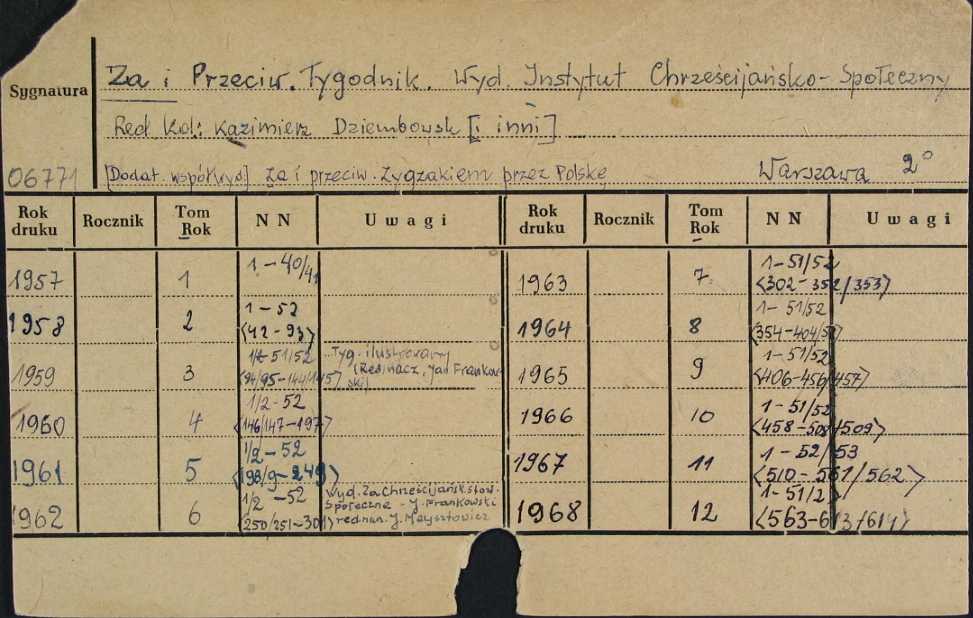 Sygnatura
06771
Za i Przeciw. Tygodnik. Wyd. Instytut Chrześcijańsko-Społeczny
Red Kol: Kazimierz Dziembowski [i inni]
[Dodat. współwyd] Za i przeciw. Zygzakiem przez Polskę Warszawa 2°
Rok druku Rocznik Tom Rok NN Uwagi Rok druku Rocznik Tom Rok NN Uwagi
1957 1 1-40/41
1958 2 1-52 <42-93>
1959 3 1/2-51/52 <94/95-144/145> Tyg. ilustrowany (Red. nacz. Jan Frankowski)
1960 4 1/2-52 <146/147-197>
1961 5 1/2-52 <198/9-249>
1962 6 1/2-52 <250/251-301> Wyd. Za Chrześcijańsk. stow. Społeczne - J. Frankowski red. J. Meysztowicz
1963 7. 1-51/52 <302-352/353>
1964 8 1-51/52 <354-404/5>
1965 9 1-51/52 <406-456/457>
1966 10 1-51/52 <458-508/509>
1967 11 1-52/53 <510-561/562>
1968 12 1-51/2 <563-613/614>